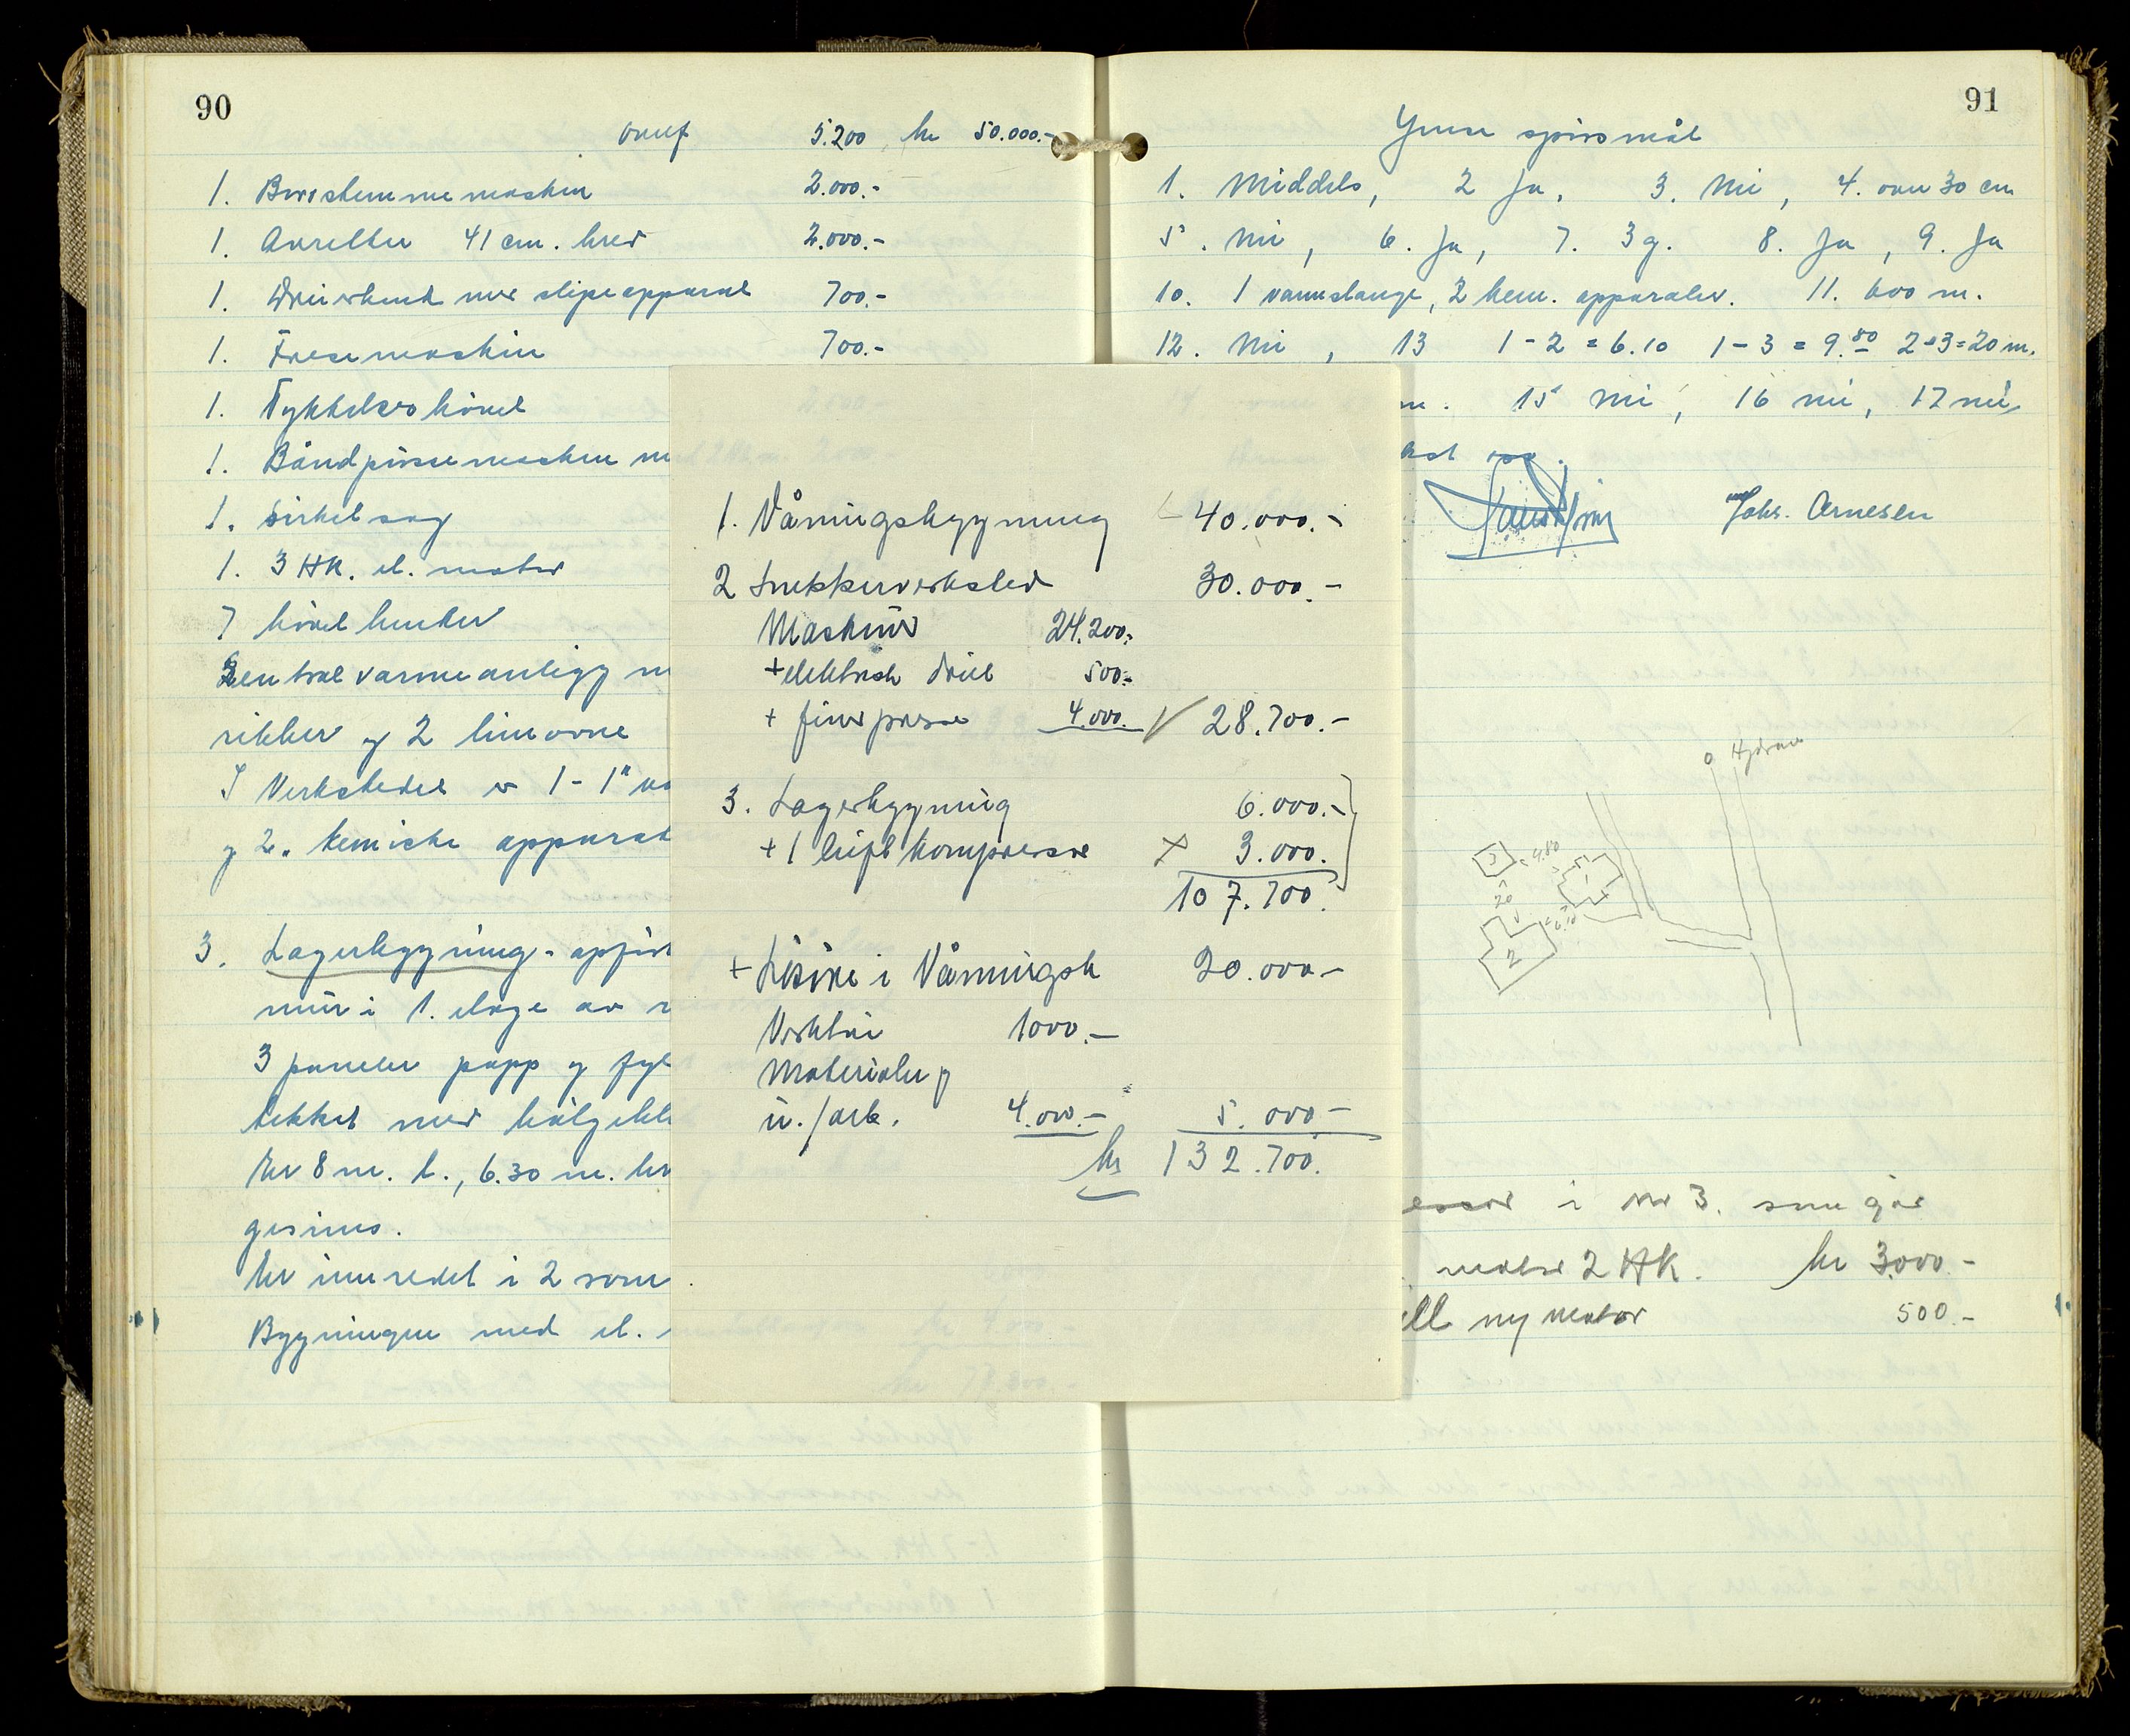 90
overf 5.200 kr 50.000.-
1. Borstemmemaskin 2.000.-
1. Avretter 41 cm. bred 2.000.-
1. Dreierbenk med slipeapparat 700.-
1. Fresemaskin 700.-
1. Tykkelseshövel
1. Båndpussemaskin m
1. Sirkelsag
1. 3 HK. el. motor
7 hövelbenker
Sentralvarmeanlegg m
rekker og 2 limovne
I Verkstedet er 1 - 1"
og 2. kemiske apparat
3. Lagerbygning - oppført
mur i 1. etage av
3 paneler papp og fyl
tekket med bölgebl
Er 8 m. l., 6.30 m. br
gesims.
Er innredet i 2 rom
Bygningen med el.
1. Våningsbygning 40.000.-
2 Snekkerverksted 30.000.-
Maskiner 24.200.-
+ elektrisk drill 500.-
+ finerpresse 4.000. 28.700.-
3. Lagerbygning 6.000.-
+ 1 luftkompressor 3.000.
107.700.
+ Lösöre i Våningsb 20.000-
Verktöi 1000.-
Materialer og
u./arb. 4.000.- 5.000-
kr 132.700.
91
Ymse spörsmål
1. Middels, 2 Ja, 3. Nei, 4. over 30 cm
5. Nei, 6. Ja, 7. 3 g. 8. Ja, 9. Ja
10. 1 vannslange, 2 kem. apparater. 11. 600 m.
12. Nei, 13 1-2 = 6.10 1-3 = 9.80 2-3=20 m.
m. 15 nei, 16 nei, 17 nei
Johs. Arnesen
o Hydran
3
4.80
1
20
6.10
2
essor i nr 3. som går
motor 2 HK. kr 3000-
ill ny motor 500.-